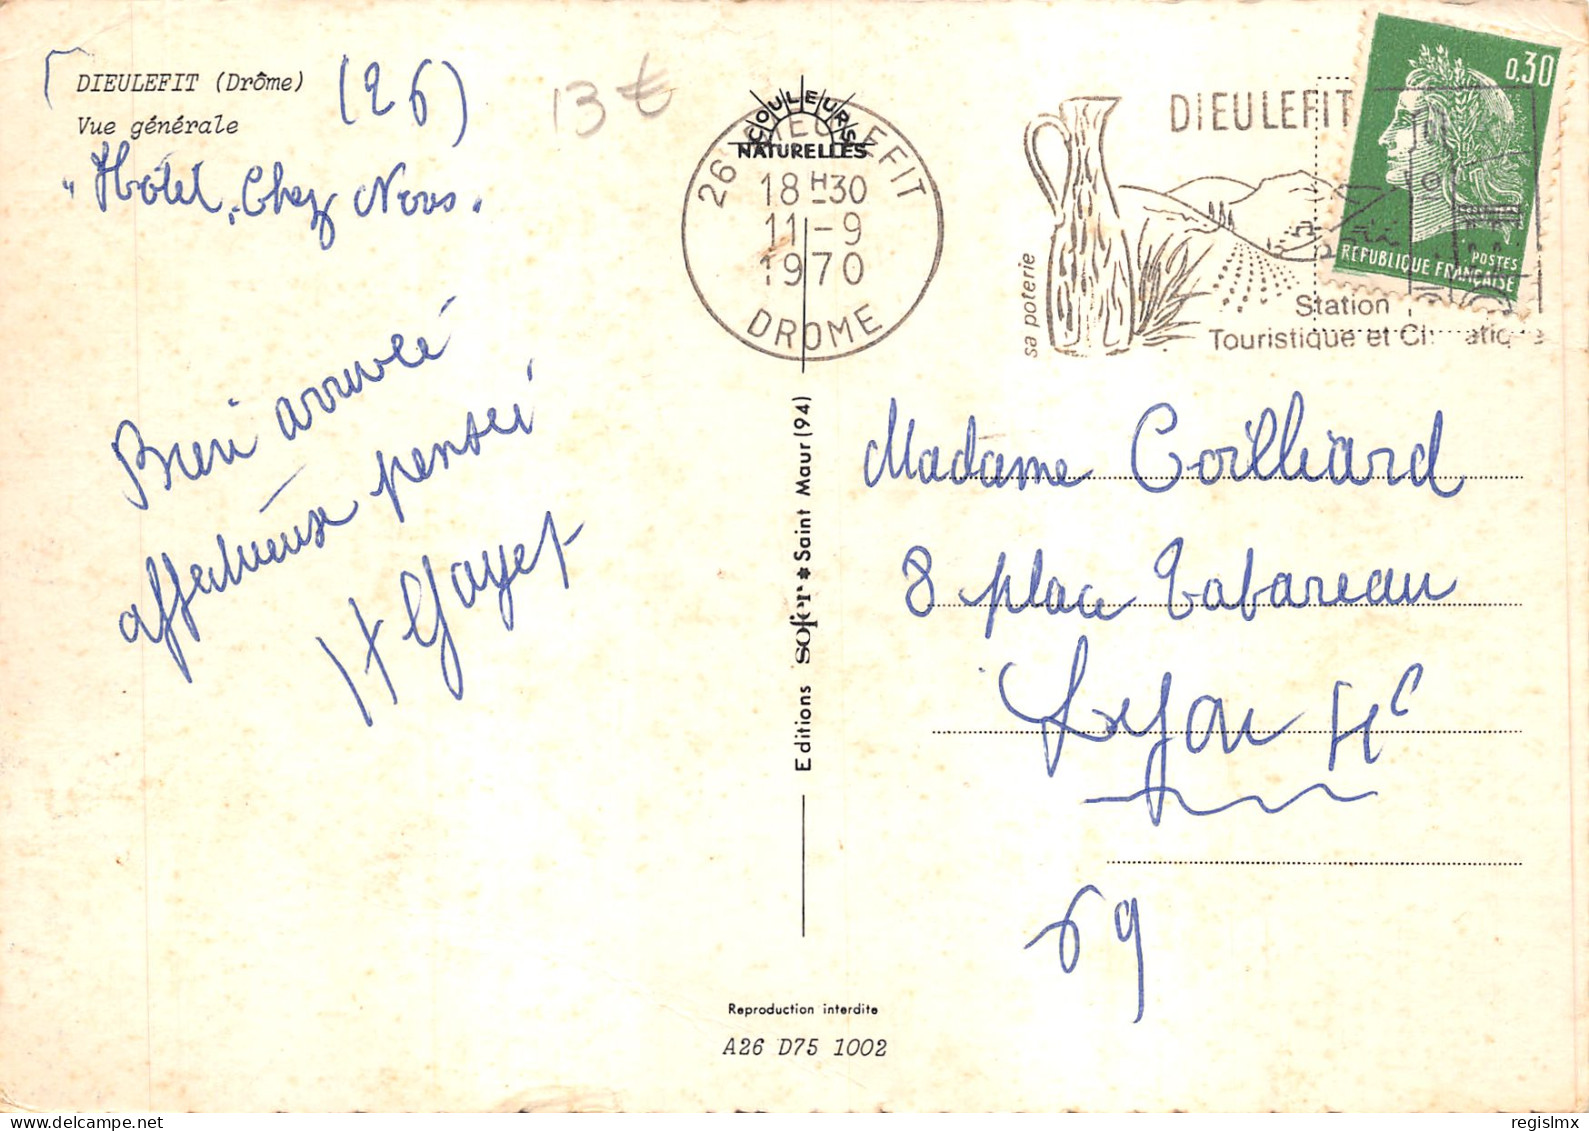 DIEULEFIT (Drôme)
(26)
Vue générale
"Hôtel, Chez Nous.
13 €
COULEURS
NATURELLES
26 DIEULEFIT
18H30
11-9
1970
DROME
DIEULEFIT
sa poterie
Station
Touristique et Cl  atique
0,30
POSTES
REPUBLIQUE FRANÇAISE
Bien arrivée
affectueuse pensée
H Gayet
Editions sofer * Saint Maur (94)
Madame Coilliard
8 place Tabareau
Lyon 4e
69
Reproduction interdite
A26 D75 1002
regislmx